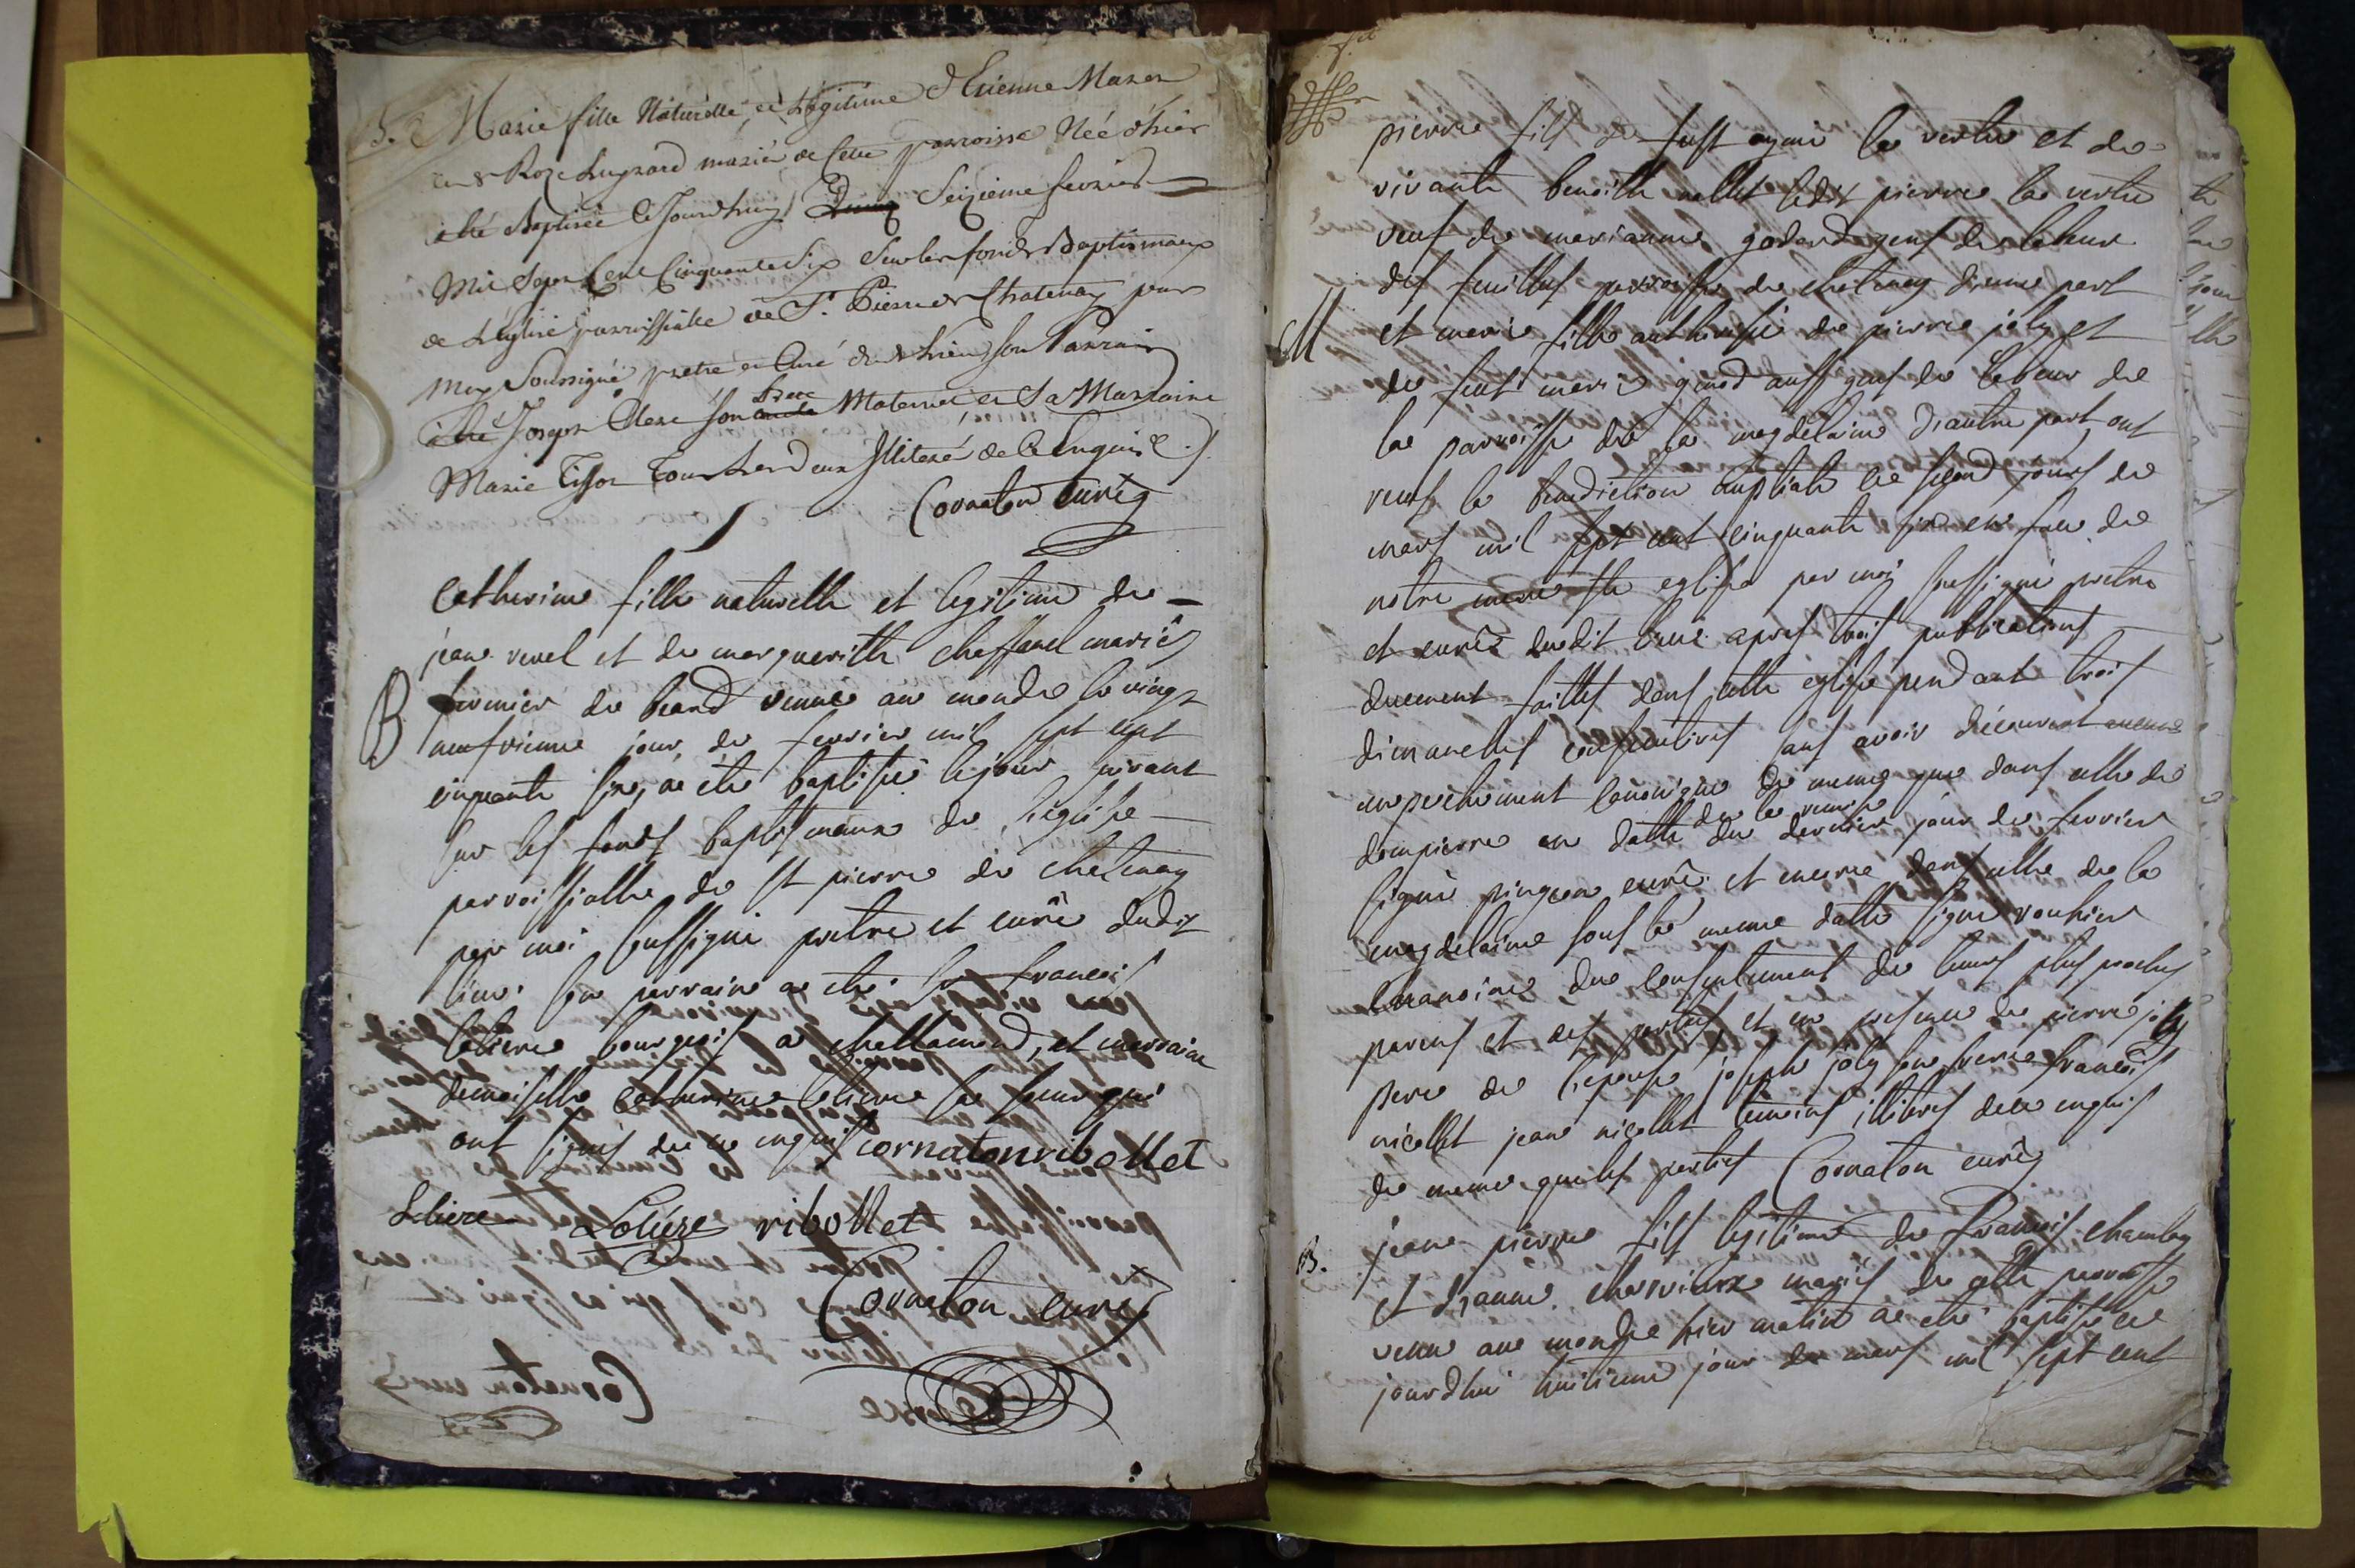 B. Marie fille Naturelle, et Legitime d'Etienne Mazon
et de Roze Lugnard mariés de Cette parroisse Née d'hier
a été Baptisée Ce Jourdhuy Seizieme fevrier
Mil Sept Cent Cinquante Six Sur les fonds Baptismaux
de L'eglise parroissialle de St. Pierre de Chatenay par
moy Soussigné pretre et Curé dud. Lieu Son Parrain
a été Joseph Clere Son frere Maternel et Sa Marraine
Marie Tissot Tous Les deux Illiteré de Ce Enquis
Cornaton curéz
Catherine fille naturelle et legitime de
jean revel et de marguerithe chaffanel mariés
B
fermier de beand venue au monde le vingt
neufvieme jour de fevrier mil sept cent
cinquante six, a ete baptisée le jour suivant
sur les fonds baptismaux de l'eglise
parroissialle de St pierre de chatenay
par moi soussigné pretre et curé dudit
lieu. son parrain a eté françois
leliere bourgeois a challamond, et marraine
demoiselle catherine leliere sa soeur qui
ont signés de ce enquis cornaton ribollet
Leliere Leliere ribollet
Cornaton curéz
pierre fils de fust aymé la verte et de
vivante benoitte nallet ledit pierre la verte
veuf de marianne godard gens de labeur
des feuilles parroisse de chatenay d'une part
M
et marie fille authorisée de pierre joly et
de feut marie guiod aussi gens de labeur de
la parroisse de la magdelaine d'autre part, ont
reçus la benediction nuptiale le second jours de
mars mil sept cent cinquante six en face de
notre mere ste eglise par moi soussigné pretre
et curé dudit lieu apres trois publications
duement faittes dans cette eglise pendant trois
dimanches consecutives sans avoir decouvert aucune
empechement canonique de meme que dans celle de
dompierre en datte du dernier jour de fevrier
signé pingeon curé, et meme dans celle de la
magdelaine sous la meme datte signé rouhier
chanoine du consentement de leurs plus proches
parens et des parties, et en presence de pierre joly
pere de l'epouse joseph joly son frere françois
nicollet jean nicollet temoins illiteres de ce enquis
de meme que les parties Cornaton curéz
B.
jean pierre fils legitime de françois chambey
et d'anne cherviaux mariés de cette parroisse
venu au monde hier matin a eté baptisé ce
jourdhui huitieme jour de mars mil sept cent